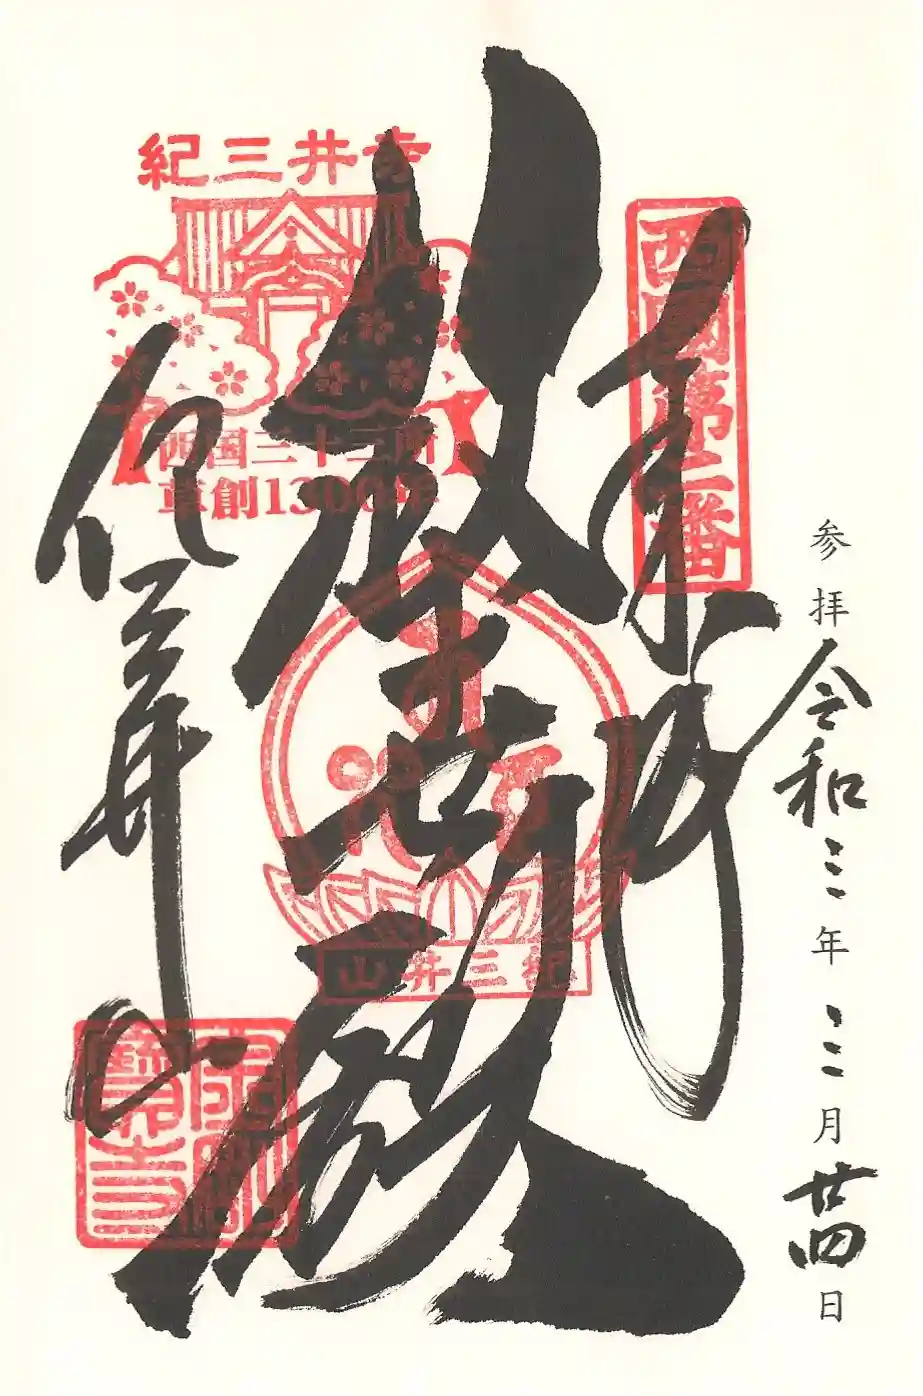 参拝令和三年三月廿四日
西国第二番
奉拝
救世殿
紀三井寺
西国三十三所
草創1300年
紀三井山
紀三井寺
金剛寶寺